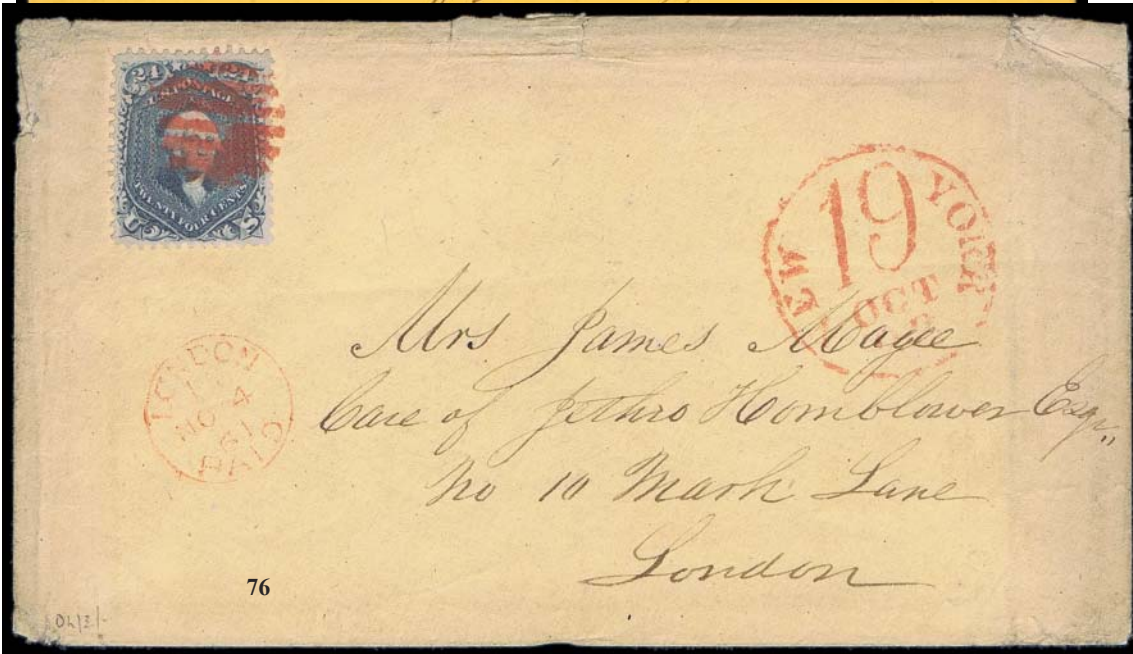 24 24
U.S. POSTAGE
TWENTY FOUR CENTS
U S
EW YORK
19
OCT
LONDON
4
61
PAID
Mrs James Magee
Care of Jethro Hornblower Esqr,,
No 10 Mark Lane
London
76